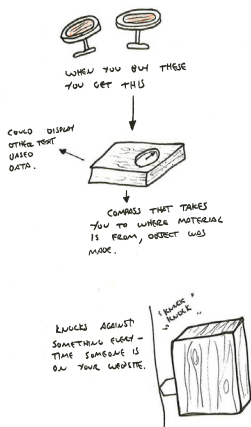 WHEN YOU BUY THESE
YOU GET THIS
COULD DISPLAY
OTHER TEXT
BASED
DATA.
COMPASS THAT TAKES
YOU TO WHERE MATERIAL
IS FROM, OBJECT WAS
MADE.
"KNOCK
KNOCK"
KNOCKS AGAINST
SOMETHING EVERY-
TIME SOMEONE IS
ON YOUR WEBSITE.